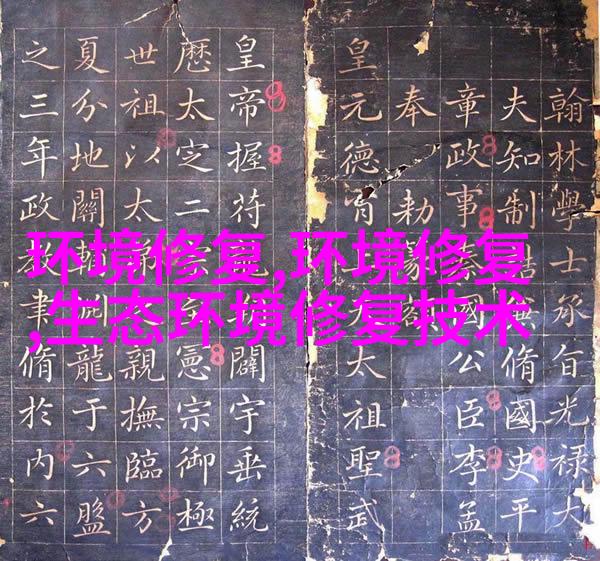 环境修复,环境修复
,生态环境修复技术
翰林學士承旨光祿大
夫知制脩國史平
章政事國公臣李孟
奉勅篆
皇元德胄太祖聖武
皇帝握符闢宇垂統
歷太定二憲宗御極
世祖以太弟親撫臨方
夏分地關龍于六盤
之三年政教聿脩於內六